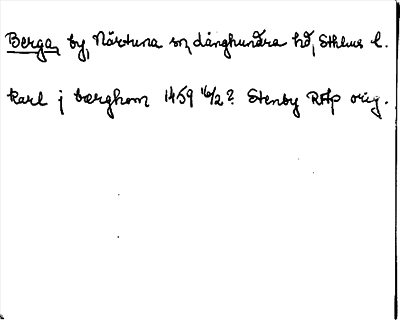 Berga, by, Närtuna sn, Långhundra hd, Sthlms l.
karl j bærghom 1459 16/2? Stenby RAp orig.